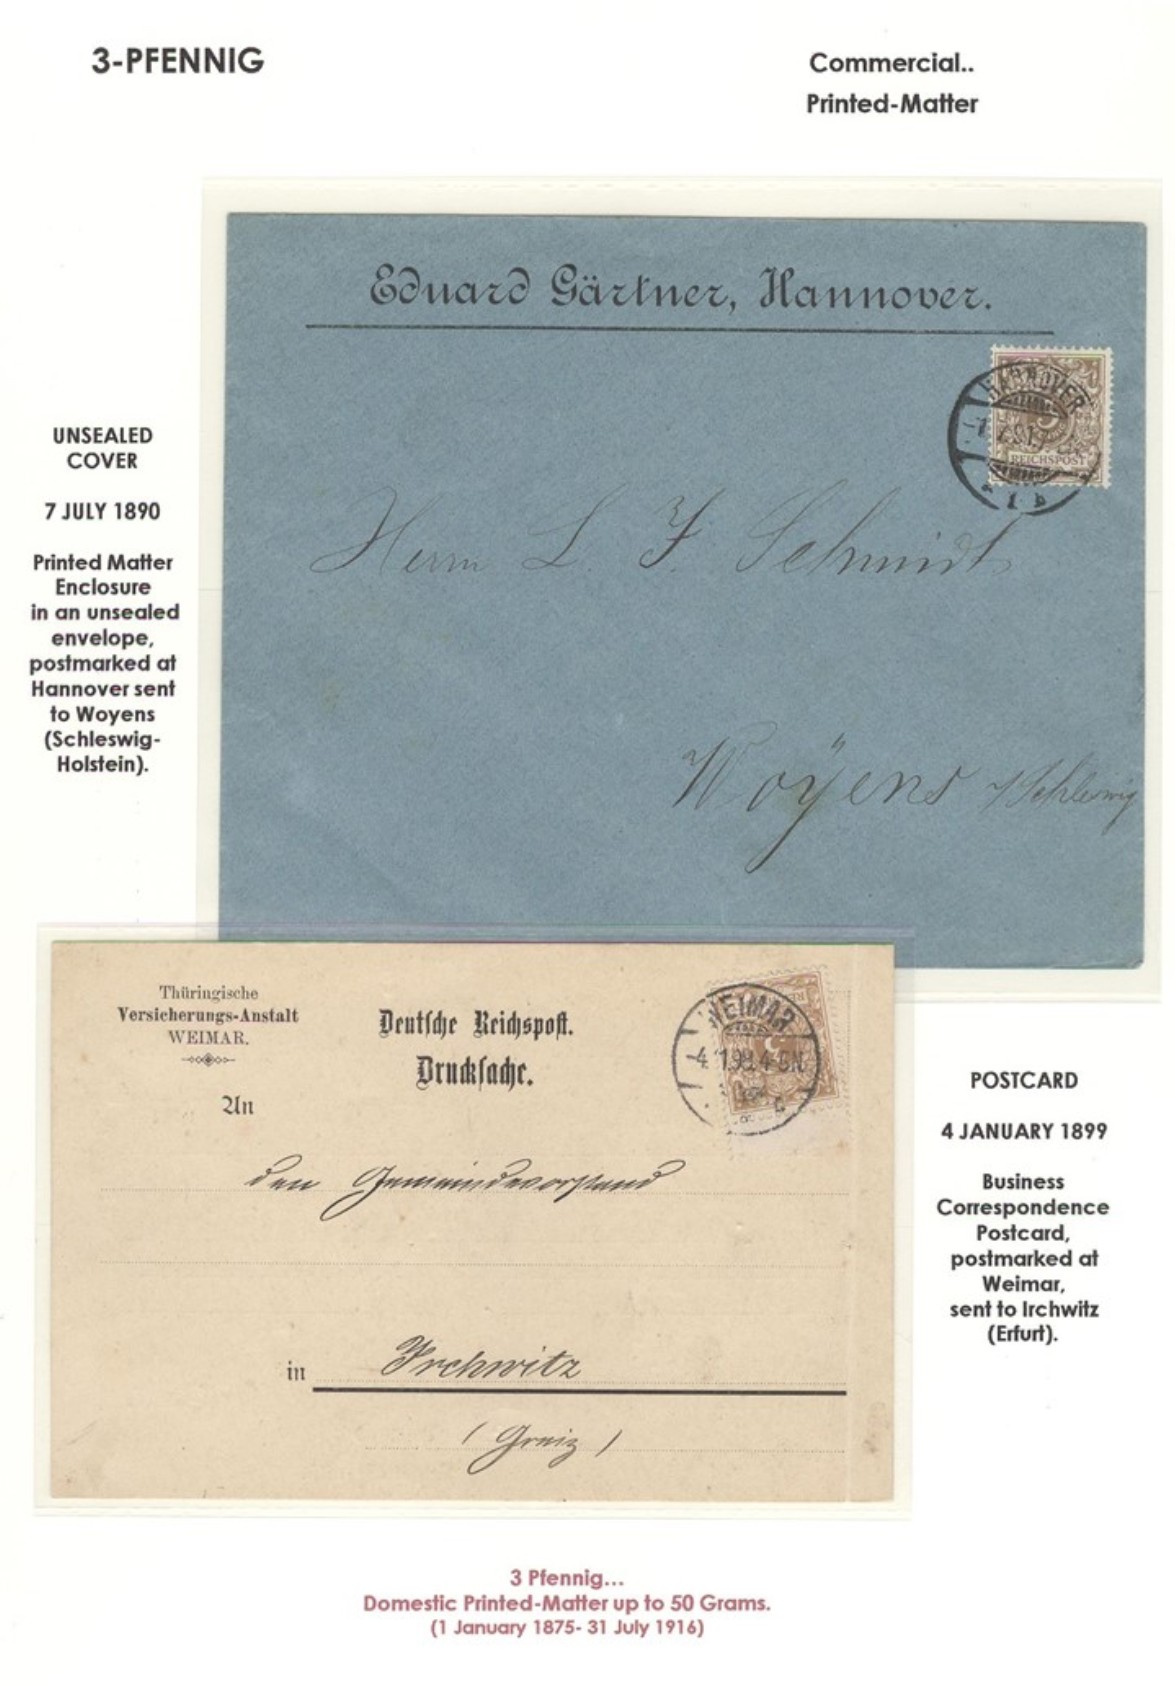 3-PFENNIG
Commercial..
Printed-Matter
Eduard Gärtner, Hannover.
HANNOVER
REICHSPOST
1 b
Herrn L. F. Schmidt
Woÿens /Schleswig
UNSEALED
COVER
7 JULY 1890
Printed Matter
Enclosure
in an unsealed
envelope,
postmarked at
Hannover sent
to Woyens
(Schleswig-
Holstein).
Thüringische
Versicherungs-Anstalt
WEIMAR.
Deutsche Reichspost.
Drucksache.
WEIMAR
4 1 99 4-5N
c
An
den Gemeindevorstand
in Irchwitz
(Greiz)
POSTCARD
4 JANUARY 1899
Business
Correspondence
Postcard,
postmarked at
Weimar,
sent to Irchwitz
(Erfurt).
3 Pfennig...
Domestic Printed-Matter up to 50 Grams.
(1 January 1875- 31 July 1916)